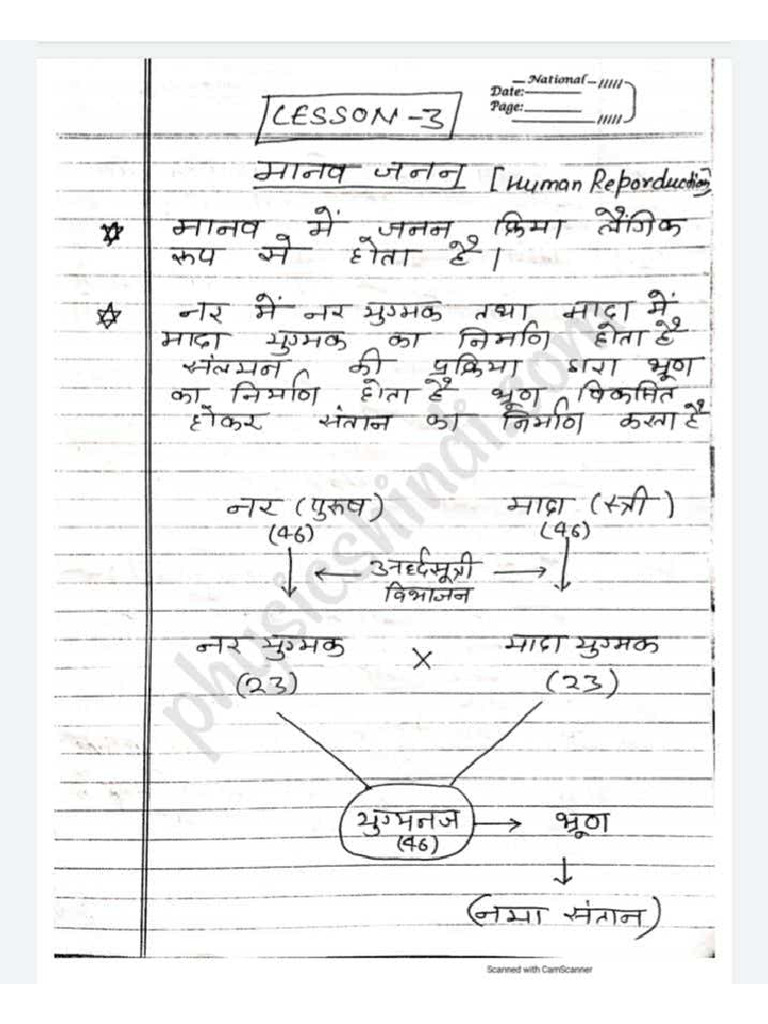 National
Date:
Page:
LESSON-3
मानव जनन [Human Reporduction]
मानव में जनन क्रिया लैंगिक
रूप से होता है।
नर में नर युग्मक तथा मादा में
मादा युग्मक का निर्माण होता है
संलयन की प्रक्रिया द्वारा भ्रूण
का निर्माण होता है भ्रूण विकसित
होकर संतान का निर्माण करता है
नर (पुरुष) मादा (स्त्री)
(46) (46)
अर्द्धसूत्री
विभाजन
नर युग्मक × मादा युग्मक
(23) (23)
युग्मनज → भ्रूण
(46)
(नया संतान)
physicshindi.com
Scanned with CamScanner